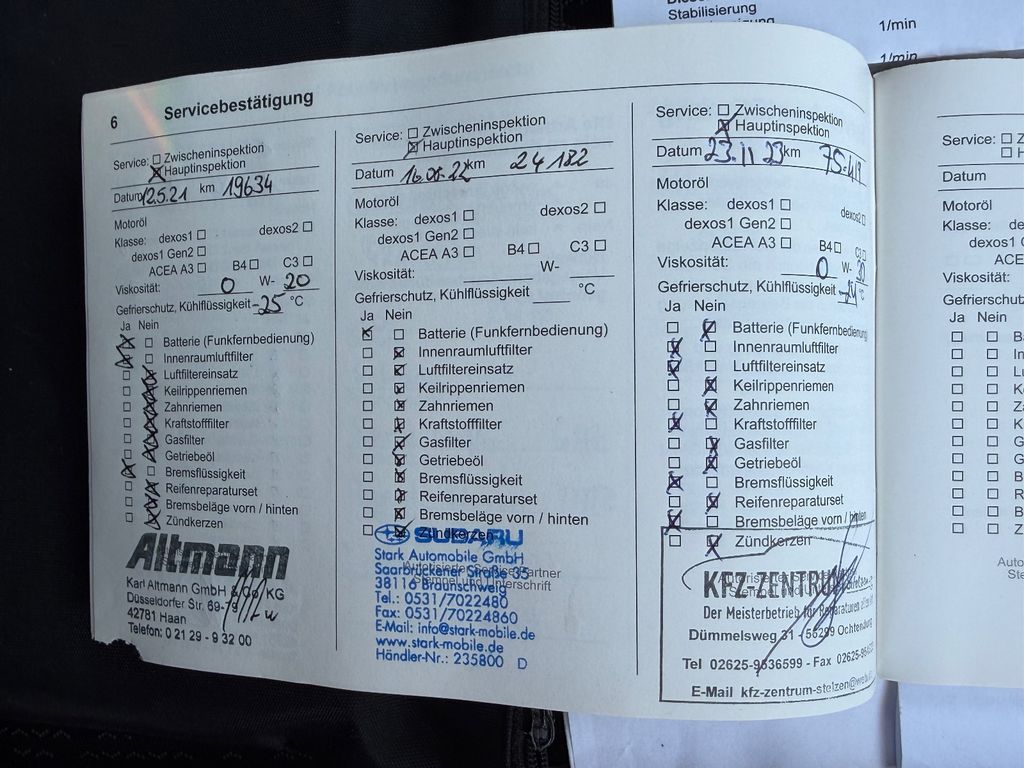 Stabilisierung
1/min
1/min
6 Servicebestätigung
Service: ☐ Zwischeninspektion
☒ Hauptinspektion
Datum 12.5.21 km 19634
Motoröl
Klasse: dexos1 ☐ dexos2 ☐
dexos1 Gen2 ☐
ACEA A3 ☐ B4 ☐ C3 ☐
Viskosität: 0 W- 20
Gefrierschutz, Kühlflüssigkeit -25 °C
Ja Nein
Batterie (Funkfernbedienung)
Innenraumluftfilter
Luftfiltereinsatz
Keilrippenriemen
Zahnriemen
Kraftstofffilter
Gasfilter
Getriebeöl
Bremsflüssigkeit
Reifenreparaturset
Bremsbeläge vorn / hinten
Zündkerzen
Altmann
Karl Altmann GmbH & Co. KG
Düsseldorfer Str. 69-79
42781 Haan
Telefon: 0 21 29 - 9 32 00
Service: ☐ Zwischeninspektion
☒ Hauptinspektion
Datum 16.08.22 km 24182
Motoröl
Klasse: dexos1 ☐ dexos2 ☐
dexos1 Gen2 ☐
ACEA A3 ☐ B4 ☐ C3 ☐
Viskosität: W-
Gefrierschutz, Kühlflüssigkeit °C
Ja Nein
Batterie (Funkfernbedienung)
Innenraumluftfilter
Luftfiltereinsatz
Keilrippenriemen
Zahnriemen
Kraftstofffilter
Gasfilter
Getriebeöl
Bremsflüssigkeit
Reifenreparaturset
Bremsbeläge vorn / hinten
Zündkerzen
SUBARU
Stark Automobile GmbH
Autorisierter Service Partner
Saarbrückener Straße 35
Stempel und Unterschrift
38116 Braunschweig
Tel.: 0531/70022480
Fax: 0531/70224860
E-Mail: info@stark-mobile.de
www.stark-mobile.de
Händler-Nr.: 235800 D
Service: ☐ Zwischeninspektion
☒ Hauptinspektion
Datum 23.11.23 km 75419
Motoröl
Klasse: dexos1 ☐ dexos2 ☐
dexos1 Gen2 ☐
ACEA A3 ☐ B4 ☐ C3 ☐
Viskosität: 0 W- 20
Gefrierschutz, Kühlflüssigkeit °C
Ja Nein
Batterie (Funkfernbedienung
Innenraumluftfilter
Luftfiltereinsatz
Keilrippenriemen
Zahnriemen
Kraftstofffilter
Gasfilter
Getriebeöl
Bremsflüssigkeit
Reifenreparaturset
Bremsbeläge vorn / hinten
Zündkerzen
KFZ-ZENTRUM
Der Meisterbetrieb für Reparaturen
Dümmelsweg 31 - 56299 Ochtendung
Tel 02625-9636599 - Fax
E-Mail kfz-zentrum-stelzen@web
Service: ☐
☐
Datum
Motoröl
Klasse: dexos
dexos1
Viskosität:
Gefrierschutz
Ja Nein